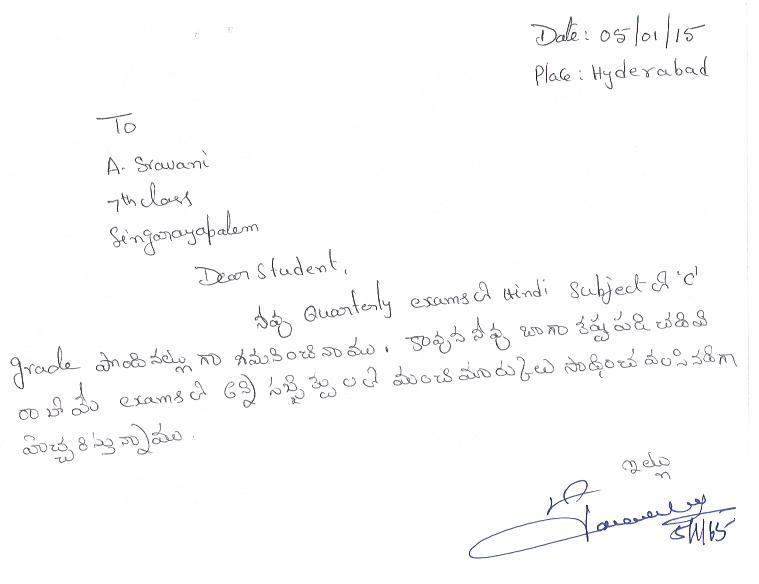 Date: 05/01/15
Place: Hyderabad
To
A. Sravani
7th class
Singarayapalem
Dear Student,
నీవు Quarterly examsలో Hindi Subjectలో 'C'
grade పొందినట్లు గా గమనించినాము. కావున నీవు బాగా కష్టపడి చదివి
రాబోయే examsలో అన్ని సబ్జెక్ట్లలో మంచి మార్కులు సాధించవలసినదిగా
హెచ్చరిస్తున్నాము.
ఇట్లు